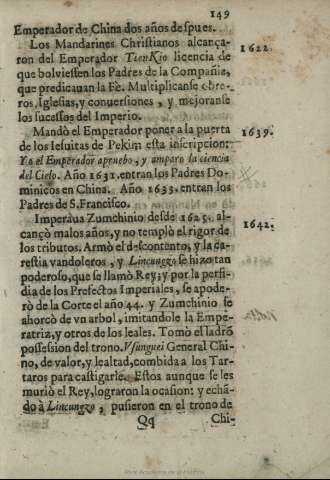 149
Emperador de China dos años despues.
Los Mandarines Christianos alcança-
ron del Emperador TienKio licencia de
que bolviessen los Padres de la Compañia,
que predicauan la Fè. Multiplicanse obre-
ros, Iglesias, y conuersiones, y mejoranse
los sucessos del Imperio.
1622.
Mandò el Emperador poner a la puerta
de los Iesuitas de Pekim esta inscripcion:
Yo el Emperador apruebo, y amparo la ciencia
del Cielo. Año 1631. entran los Padres Do-
minicos en China. Año 1633. entran los
Padres de S. Francisco.
1639.
Imperaua Zumchinio desde 1625. al-
cançò malos años, y no templò el rigor de
los tributos. Armò el descontento, y la ca-
restia vandoleros, y Lincungzo se hizo tan
poderoso, que se llamò Rey; y por la perfi-
dia de los Prefectos Imperiales, se apode-
rò de la Corte el año 44. y Zumchinio se
ahorcò de vn arbol, imitandole la Empe-
ratriz, y otros de los leales. Tomò el ladrõ
possession del trono. Vsunguei General Chi-
no, de valor, y lealtad, combida a los Tar-
taros para castigarle. Estos aunque se les
murió el Rey, lograron la ocasion: y echã-
do à Lincungzo, pusieron en el trono de
1642.
Qq
Chi-
Real Academia de la Historia